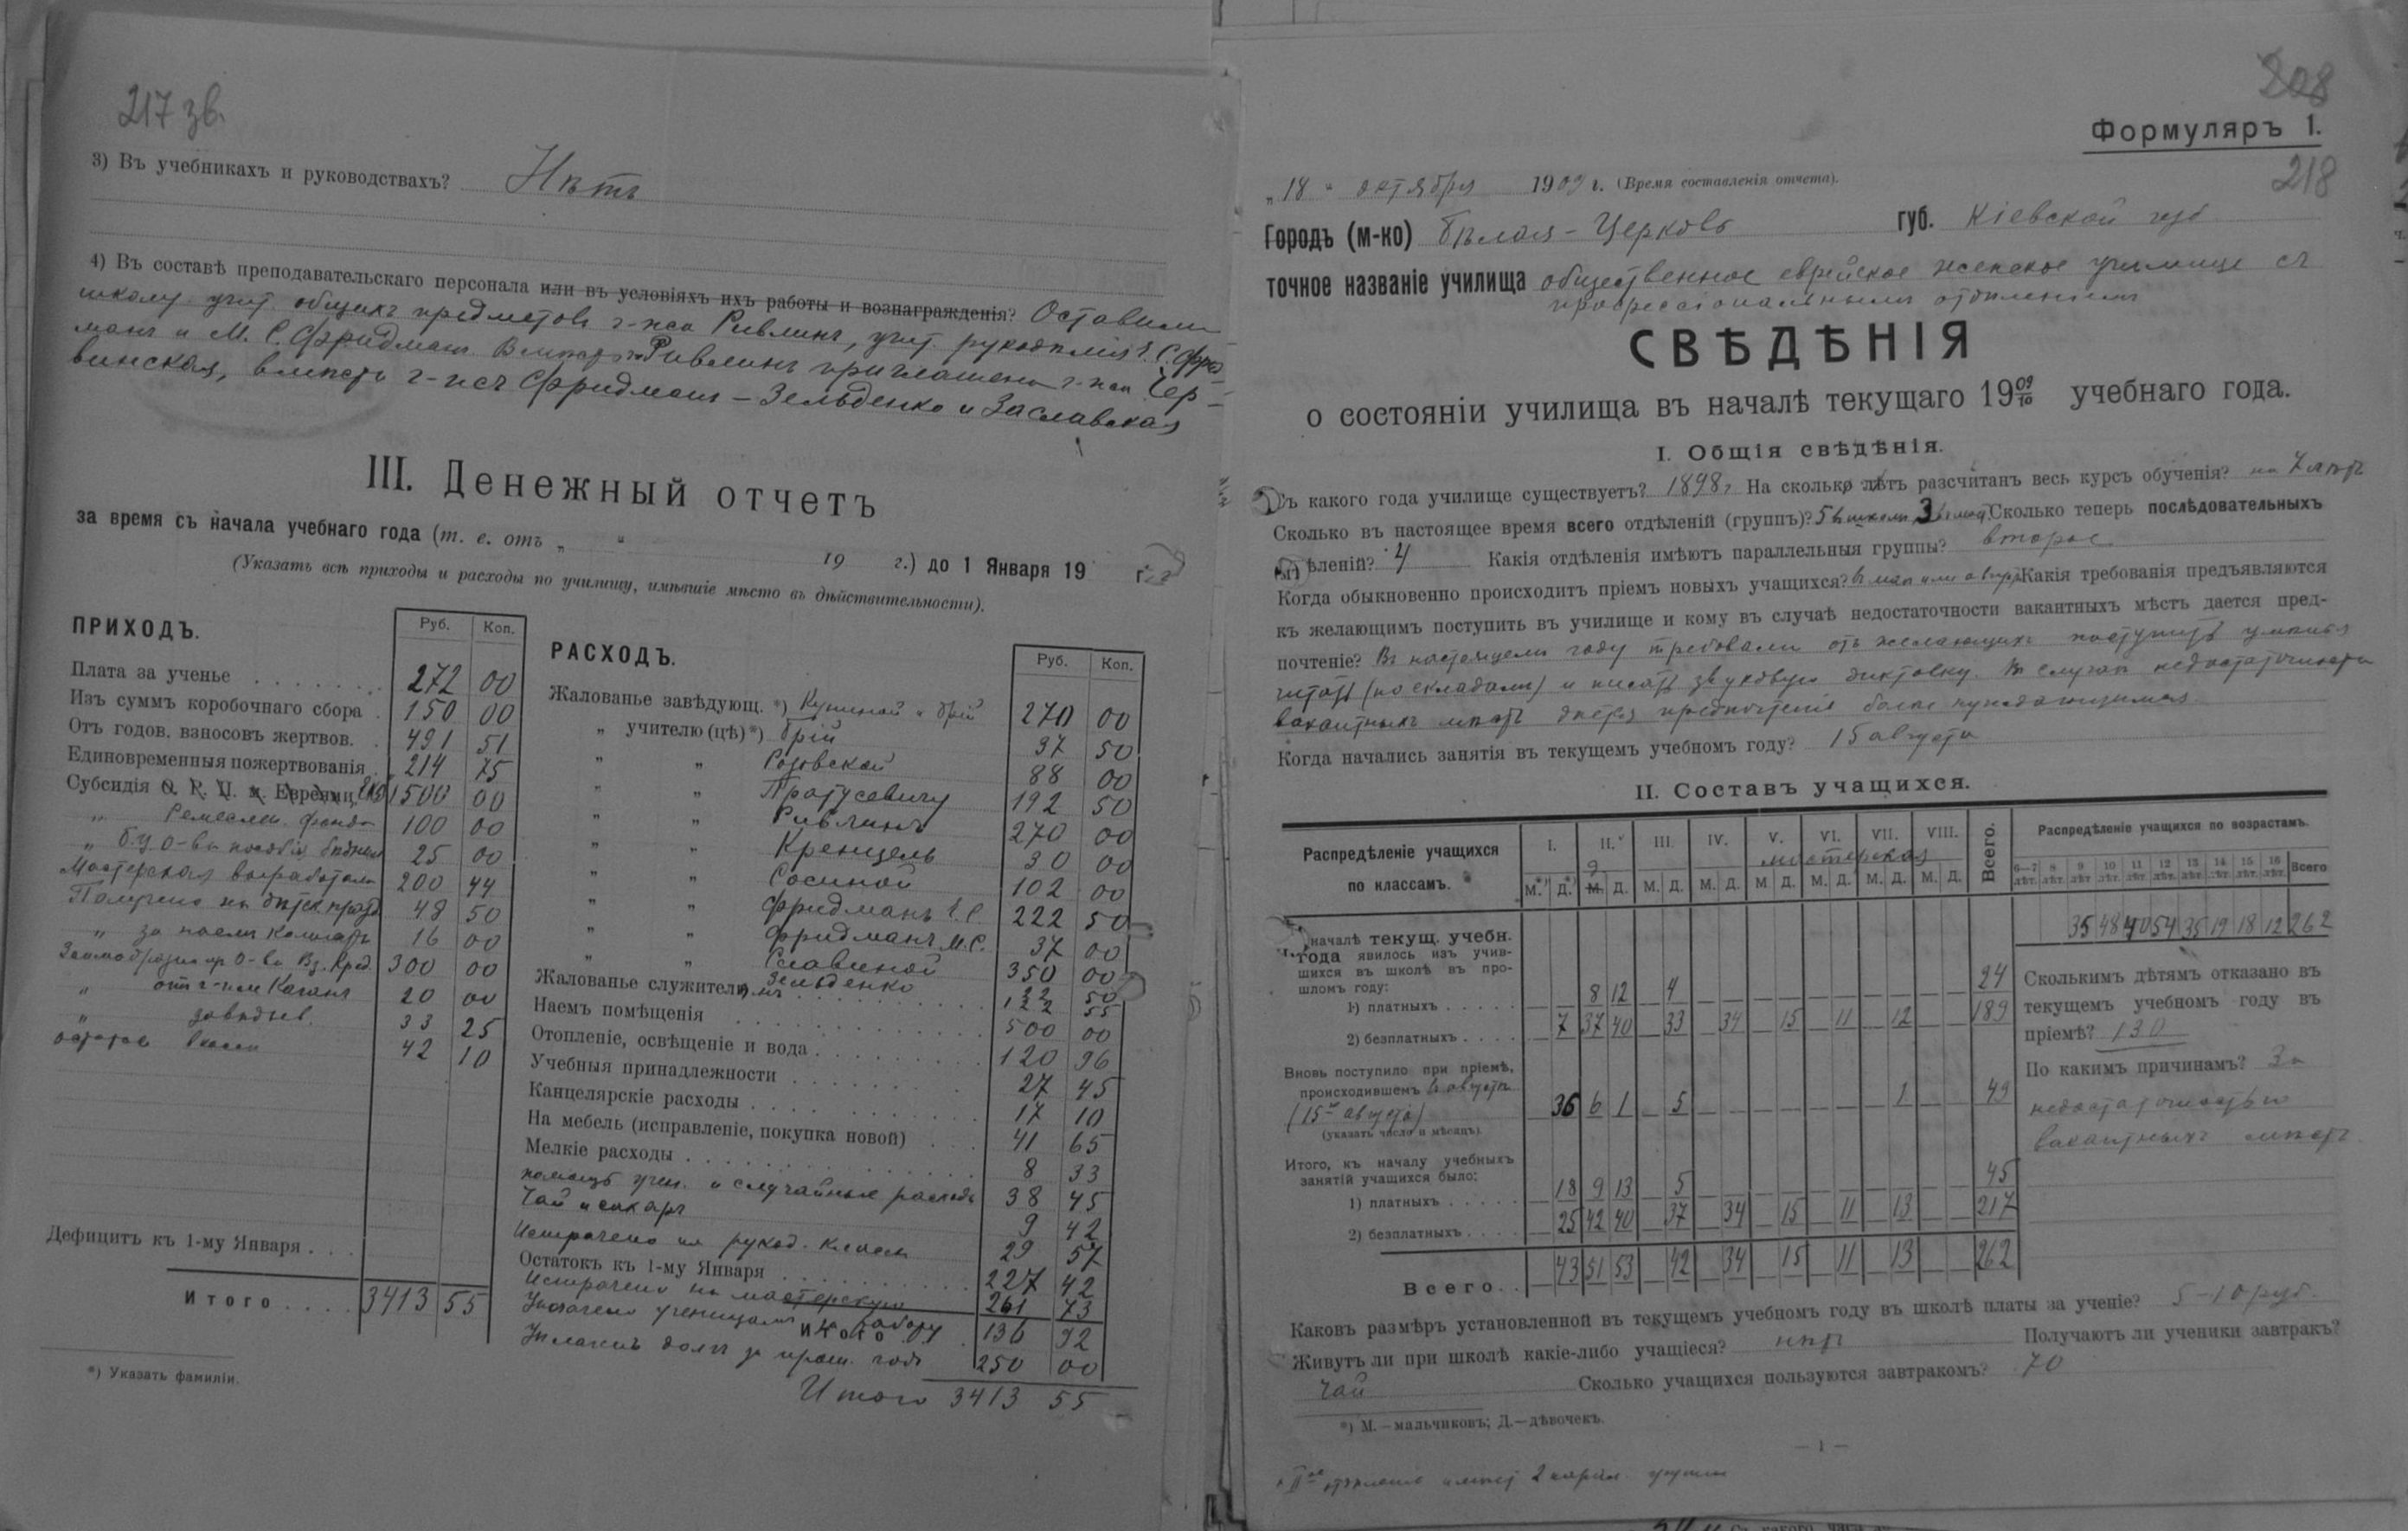 217 зв.
3) Въ учебникахъ и руководствахъ? Нѣтъ
4) Въ составѣ преподавательскаго персонала или въ условіяхъ ихъ работы и вознагражденія? Оставили
школу учит. общихъ предметовъ г-жа Ривлинъ, учит. рукодѣлія Е. С. Фрид-
манъ и М. С. Фридманъ. Вмѣсто Ривлинъ приглашена г-жа Чер-
винская, вмѣсто г-жъ Фридманъ – Зельденко и Заславская
III. Денежный отчетъ
за время съ начала учебнаго года (т. е. отъ „ “ 19 г.) до 1 Января 19 г.
(Указать всѣ приходы и расходы по училищу, имѣвшіе мѣсто въ дѣйствительности).
ПРИХОДЪ. Руб. Коп.
Плата за ученье 272 00
Изъ суммъ коробочнаго сбора 150 00
Отъ годов. взносовъ жертвов. 491 51
Единовременныя пожертвованія 214 75
Субсидія О. Р. П. и. Евреямъ 1500 00
„ Ремеслен. фонда 100 00
„ О-ва пособія бѣднымъ 25 00
Мастерская выработала 200 44
Получено на дѣтск. празд. 48 50
„ за наемъ комнаты 16 00
Заимообразно пр О-ва Вз. Кред. 300 00
„ отъ г-жи Каганъ 20 00
„ завѣдыв. 33 25
остатокъ кассы 42 10
Дефицитъ къ 1-му Января
Итого 3413 55
*) Указать фамиліи.
РАСХОДЪ. Руб. Коп.
Жалованье завѣдующ. *) Брій 270 00
„ учителю (цѣ) *) Брій 37 50
„ „ Розовской 88 00
„ „ Пратусевичу 192 50
„ „ Ривлинъ 270 00
„ „ Кренцель 30 00
„ „ Сосиной 102 00
„ „ Фридманъ Е. С. 222 50
„ „ Фридманъ М. С. 37 00
„ „ Славиной 350 00
Зельденко 22 50
Жалованье служителямъ 122 55
Наемъ помѣщенія 500 00
Отопленіе, освѣщеніе и вода 120 96
Учебныя принадлежности 27 45
Канцелярскіе расходы 17 10
На мебель (исправленіе, покупка новой) 41 65
Мелкіе расходы 8 33
помощь учен. и случайные расходы 38 45
Чай и сахаръ 9 42
Истрачено на рукод. классы 29 57
Остатокъ къ 1-му Января 227 42
Истрачено на мастерскую 261 73
Уплачено ученицамъ за работу 136 92
Итого
Уплаченъ долгъ за прош. годъ 250 00
Итого 3413 55
208
Формуляръ 1.
218
„18“ октября 1909 г. (Время составленія отчета).
Городъ (м-ко) Бѣлая-Церковь губ. Кіевской губ
точное названіе училища общественное еврейское женское училище съ
профессіональнымъ отдѣленіемъ
СВѢДѢНІЯ
о состояніи училища въ началѣ текущаго 1909/10 учебнаго года.
I. Общія свѣдѣнія.
Съ какого года училище существуетъ? 1898 г. На сколько лѣтъ разсчитанъ весь курсъ обученія? на 7 лѣтъ
Сколько въ настоящее время всего отдѣленій (группъ)? 5 въ школѣ 3 въ маст. Сколько теперь послѣдовательныхъ
отдѣленій? 4 Какія отдѣленія имѣютъ параллельныя группы? второе
Когда обыкновенно происходитъ пріемъ новыхъ учащихся? въ маѣ или авгус. Какія требованія предъявляются
къ желающимъ поступить въ училище и кому въ случаѣ недостаточности вакантныхъ мѣстъ дается пред-
почтеніе? Въ настоящемъ году требовали отъ желающихъ поступить умѣнья
читать (по складамъ) и писать звуковую диктовку. Въ случаѣ недостаточности
вакантныхъ мѣстъ дается предпочтеніе болѣе нуждающимся
Когда начались занятія въ текущемъ учебномъ году? 15 августа
II. Составъ учащихся.
Распредѣленіе учащихся по классамъ. I. II. III. IV. V. VI. VII. VIII. Всего. Распредѣленіе учащихся по возрастамъ.
мастерская
М.*) Д.*) М. Д. М. Д. М. Д. М Д. М. Д. М. Д. М. Д. 6–7 лѣт. 8 лѣт. 9 лѣт 10 лѣт. 11 лѣт. 12 лѣт. 13 лѣт. 14 лѣт. 15 лѣт. 16 лѣт. Всего
35 48 40 54 35 19 18 12 262
Въ началѣ текущ. учебн.
года явилось изъ учив-
шихся въ школѣ въ про-
шломъ году:
1) платныхъ — — 8 12 — 4 — — — — — — — — — — 24
2) безплатныхъ — 7 37 40 — 33 — 34 — 15 — 11 — 12 — — 189
Вновь поступило при пріемѣ,
происходившемъ въ августѣ
(15го августа) — 36 6 1 — 5 — — — — — — — 1 49
(указать число и мѣсяцъ).
Итого, къ началу учебныхъ
занятій учащихся было:
1) платныхъ — 18 9 13 — 5 — — — — — — — — — — 45
2) безплатныхъ — 25 42 40 — 37 — 34 — 15 — 11 — 13 — — 217
Всего — 43 51 53 — 42 — 34 — 15 — 11 — 13 — — 262
Сколькимъ дѣтямъ отказано въ
текущемъ учебномъ году въ
пріемѣ? 130
По какимъ причинамъ? За
недостаточностью
вакантныхъ мѣстъ.
Каковъ размѣръ установленной въ текущемъ учебномъ году въ школѣ платы за ученіе? 5–10 руб.
Живутъ ли при школѣ какіе-либо учащіеся? нѣтъ Получаютъ ли ученики завтракъ?
Чай Сколько учащихся пользуются завтракомъ? 70
*) М.—мальчиковъ; Д.—дѣвочекъ.
— 1 —
* IIое отдѣленіе имѣетъ 2 парал. группы